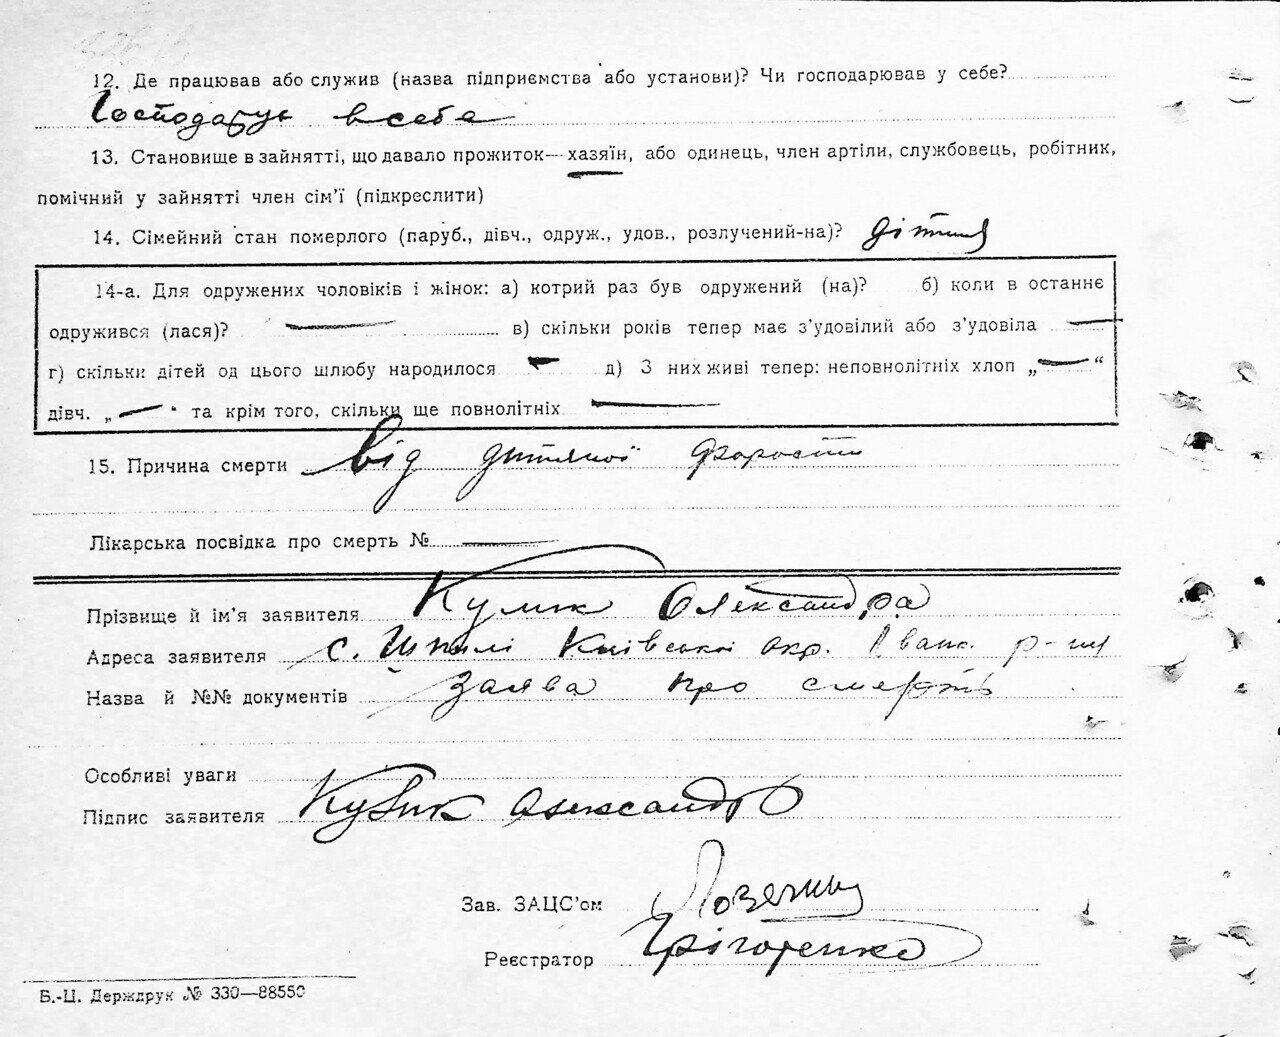 12. Де працював або служив (назва підприємства або установи)? Чи господарював у себе?
Господарує в себе
13. Становище в зайнятті, що давало прожиток—хазяїн, або одинець, член артіли, службовець, робітник,
помічний у зайнятті член сім'ї (підкреслити)
14. Сімейний стан померлого (паруб., дівч., одруж., удов., розлучений-на)? дітина
14-а. Для одружених чоловіків і жінок: а) котрий раз був одружений (на)? б) коли в останнє
одружився (лася)? — в) скільки років тепер має з'удовілий або з'удовіла —
г) скільки дітей од цього шлюбу народилося — д) З них живі тепер: неповнолітніх хлоп „—“
дівч. „—“ та крім того, скільки ще повнолітніх —
15. Причина смерти Від дитячої
Лікарська посвідка про смерть № —
Прізвище й ім'я заявителя Олександра
Адреса заявителя с. Шпилі Київської окр. Іванк. р-ну
Назва й №№ документів Заява про смерть
Особливі уваги
Підпис заявителя Олександр
Зав. ЗАЦС'ом
Реєстратор Грігоренко
Б.-Ц. Держдрук № 330—88550